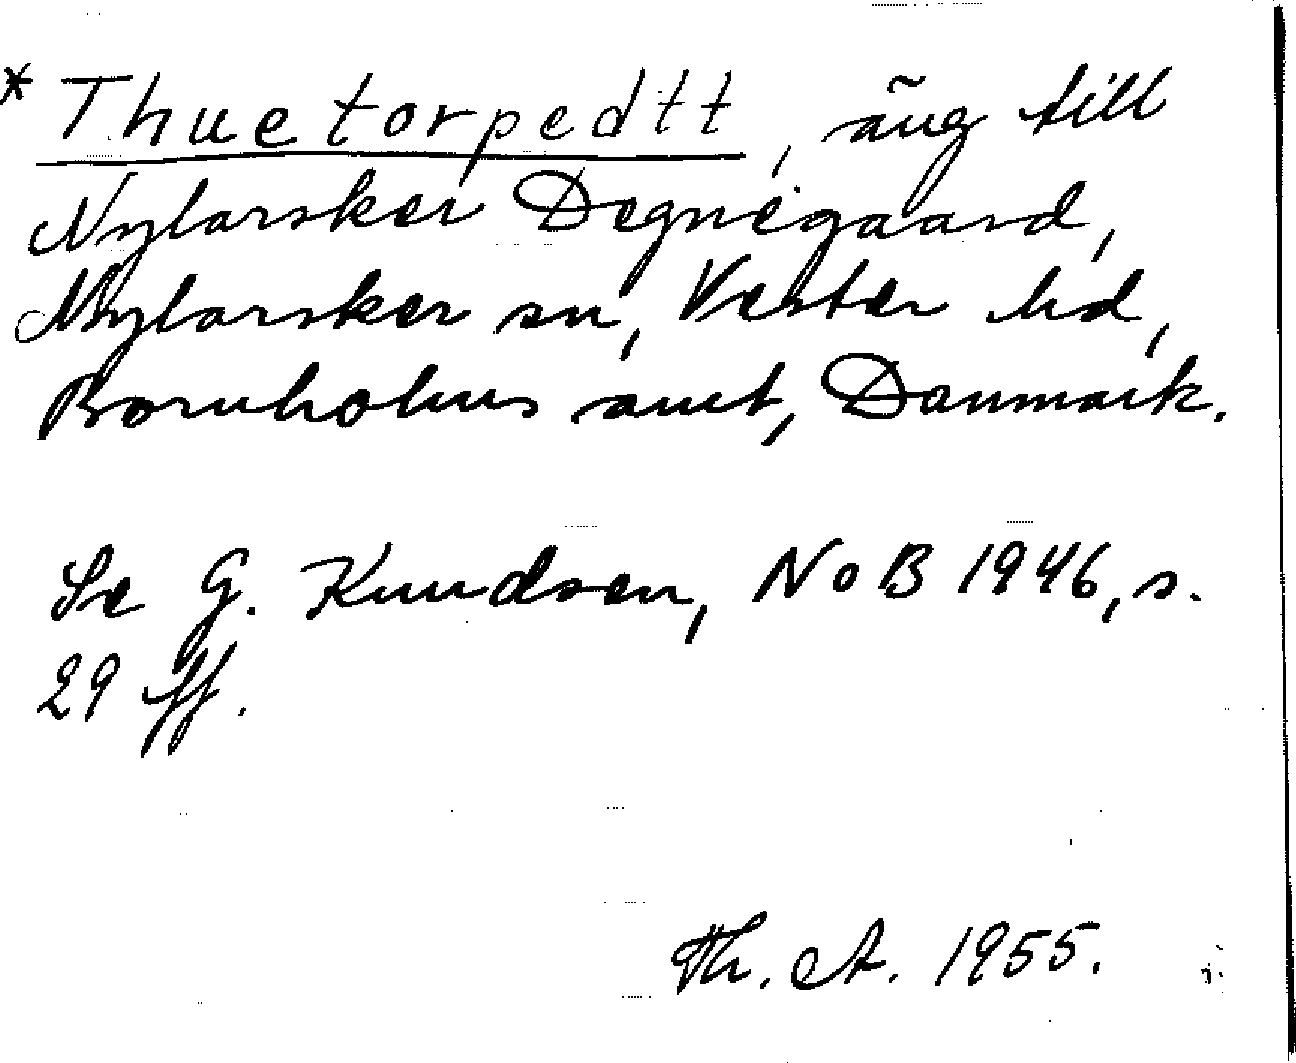 * Thuetorpedtt, äng till
Nylarsker Degnegaard,
Nylarsker sn, Vester hd,
Bornholms amt, Danmark.
Se G. Knudsen, NoB 1946, s.
29 ff.
Th. A. 1955.